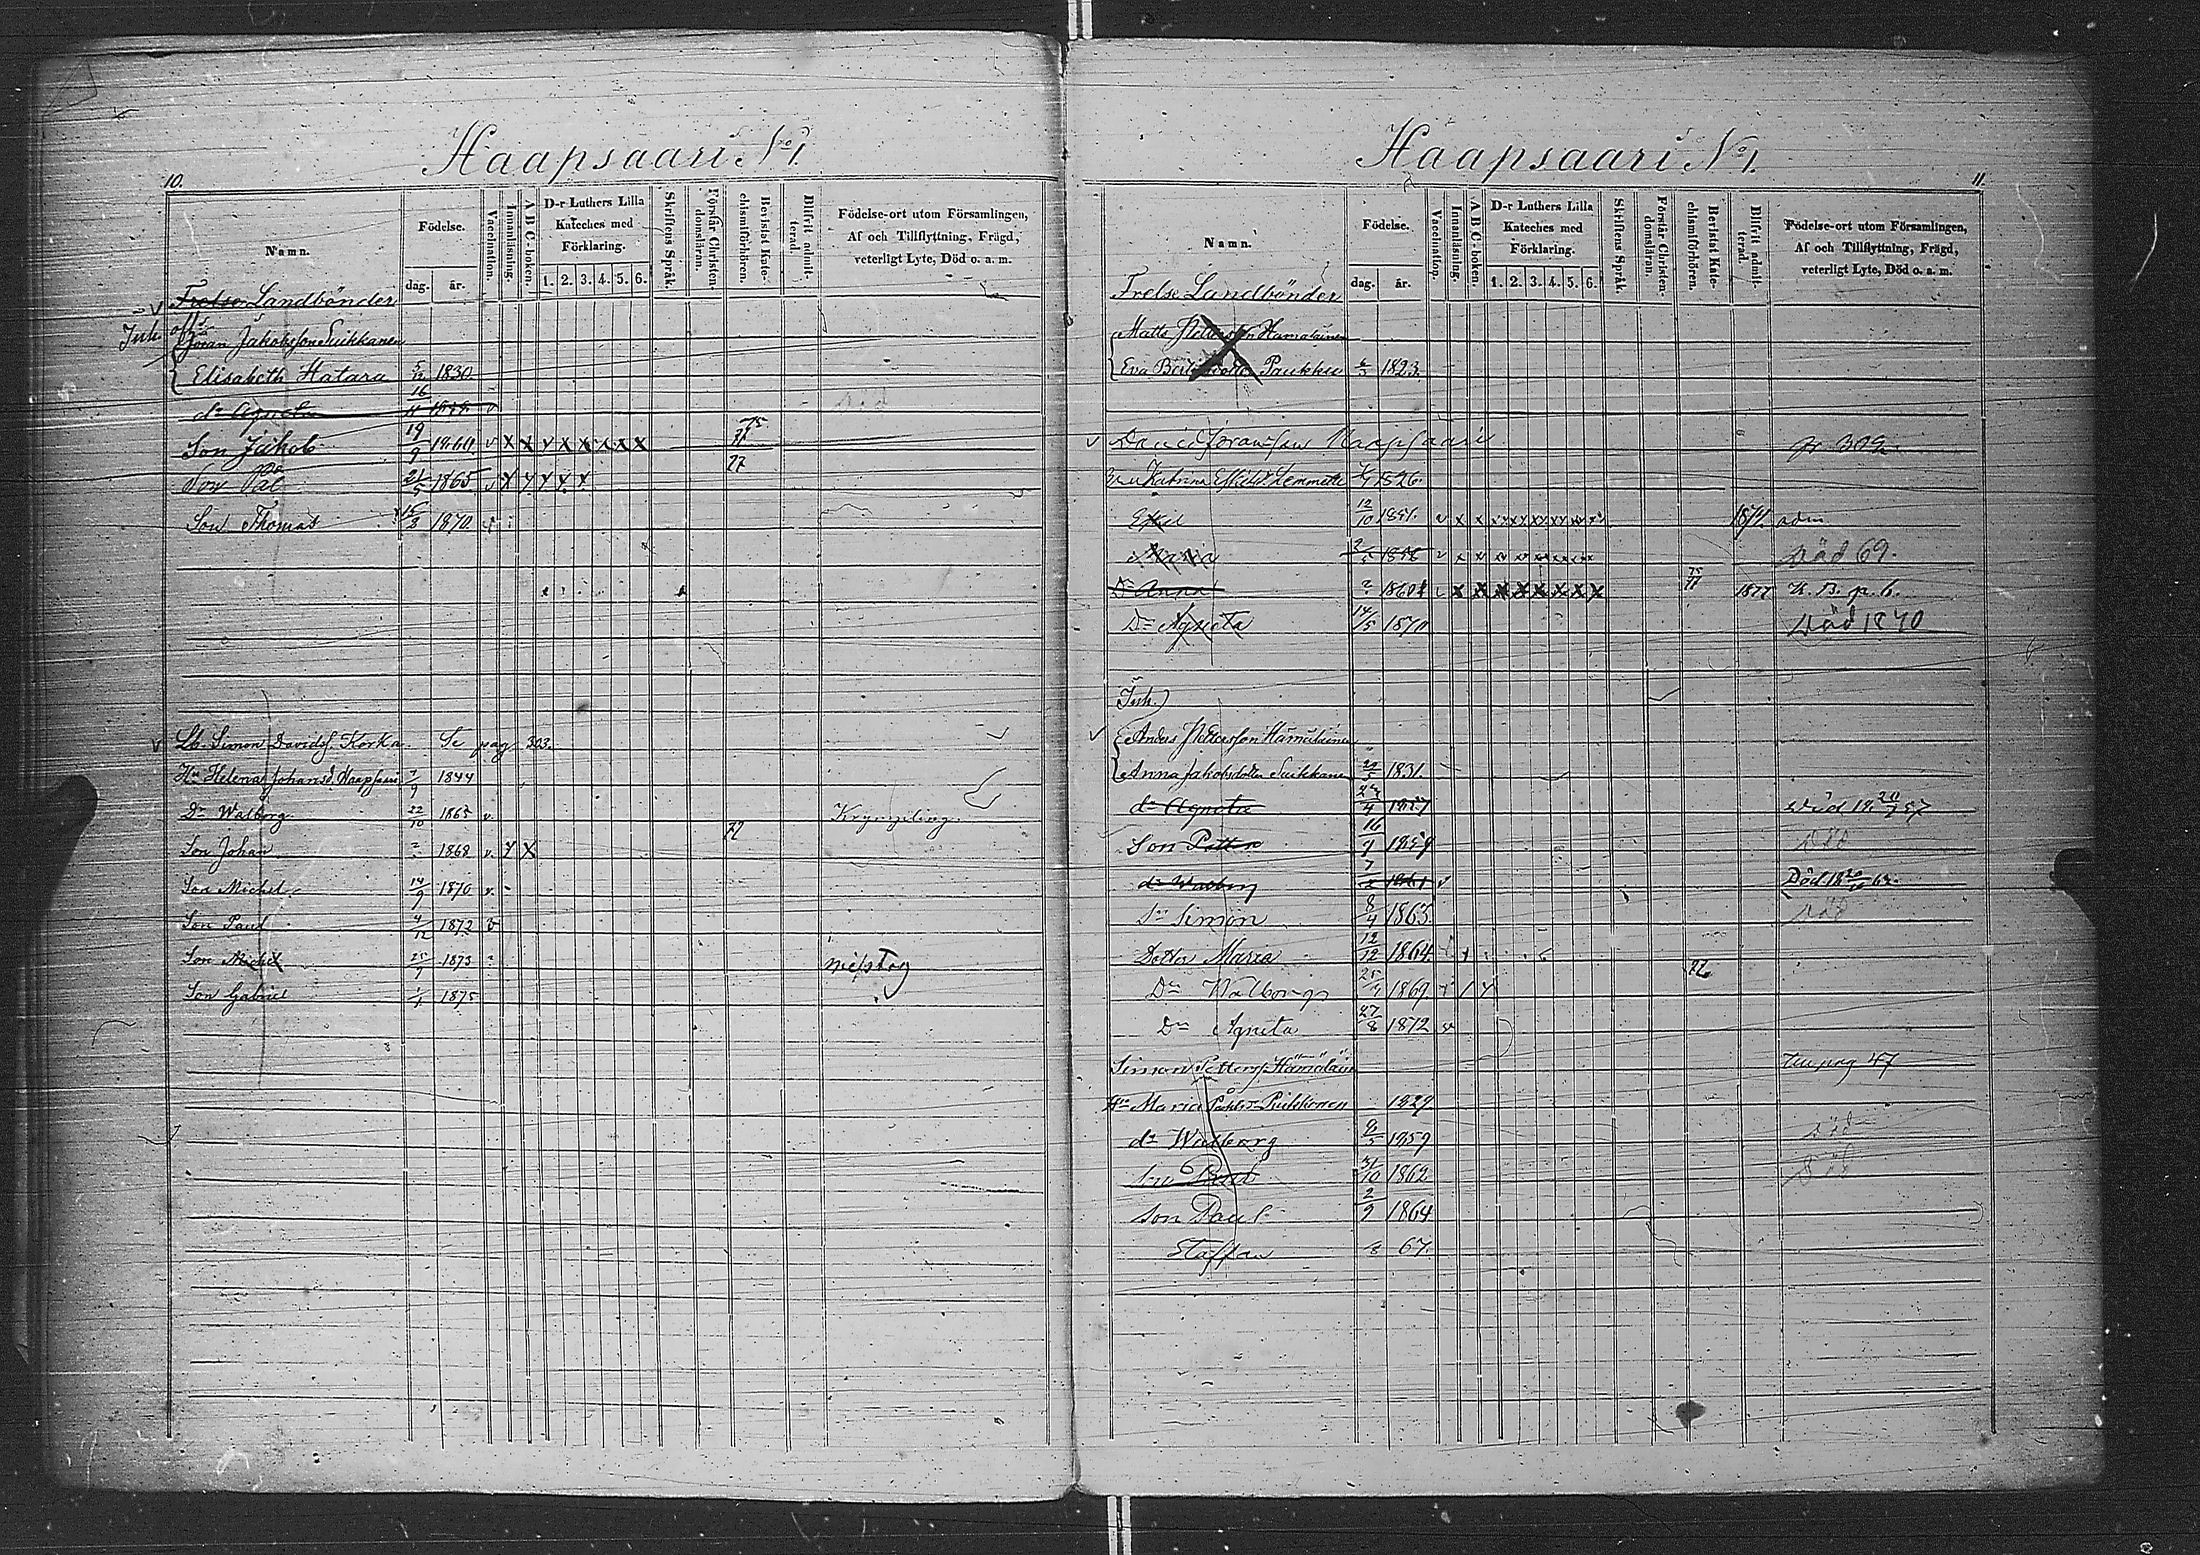 Haapsaari No 1.
10.
Namn.
Födelse.
dag.
år.
Vaccination.
Innanläsning.
A B C-boken.
D-r Luthers Lilla
Kateches med
Förklaring.
1. 2. 3. 4. 5. 6.
Skriftens Språk.
Förstår Christendomsläran.
Bevistat Katechismiförhören.
Blifvit admitterad.
Födelse-ort utom Församlingen,
Af och Tillflyttning, Frägd,
veterligt Lyte, Död o. a. m.
Frelse Landbönder
Inh. Göran Jakobsson Suikkanen
Elisabeth Hatara 5/12 1830.
dr Agneta 16/11
Son Jakob 19/9 1860 v x x v x x x x x 75 77
Son Pål 21/5 1865 v x x x x x 77
Son Thomas 15/3 1870
Lb. Simon Davidsf. Korka. Se pag 303.
Hu Helena Johansd. Haapsaari 7/9 1844
Dr Walborg 22/10 1865 v.
Son Johan 1868 v. x x 77
Son Michel 14/9 1870 v.
Son Paul 4/12 1872 v
Son Michel 25/9 1873
Son Gabriel 1/4 1875
Haapsaari No 1.
11.
Namn.
Födelse.
dag.
år.
Vaccination.
Innanläsning.
A B C-boken.
D-r Luthers Lilla
Kateches med
Förklaring.
1. 2. 3. 4. 5. 6.
Skriftens Språk.
Förstår Christendomsläran.
Bevistat Katechismiförhören.
Blifvit admitterad.
Födelse-ort utom Församlingen,
Af och Tillflyttning, Frägd,
veterligt Lyte, Död o. a. m.
Frelse Landbönder
Matts Pettersson Hämäläinen
Eva Paukku 1823.
David Göransson Haapsaari
Katrina Lemmetti 1826.
12/10 v x x 1874. adm
Maria Död 69.
Dr Anna 1860 x x x x x x x x 75 77 1877 K. B. p. 6.
Dr Agneta 14/5 1870 Död 1870
Inh.
Anders Pettersson Hämäläinen
Anna Jakobsdotter Suikkanen 1831.
dr Agneta 27/4 1857 Död
Son Petter 16/9 1859 Död
dr Walborg 7/2 1861 v Död
Sn Simon 8/4 1863. Död
Dotter Maria 12/12 1864 76
Dr Walborg 25/4 1869
Dr Agneta 27/8 1872 v
Simon Petterss Hämäläin pag 47
Hu Maria Påhlsd. Puikkonen 1829
dr Walborg 1859 Död
Son Paul 31/10 1862 Död
Son Paul 2/9 1864
Staffan 67.